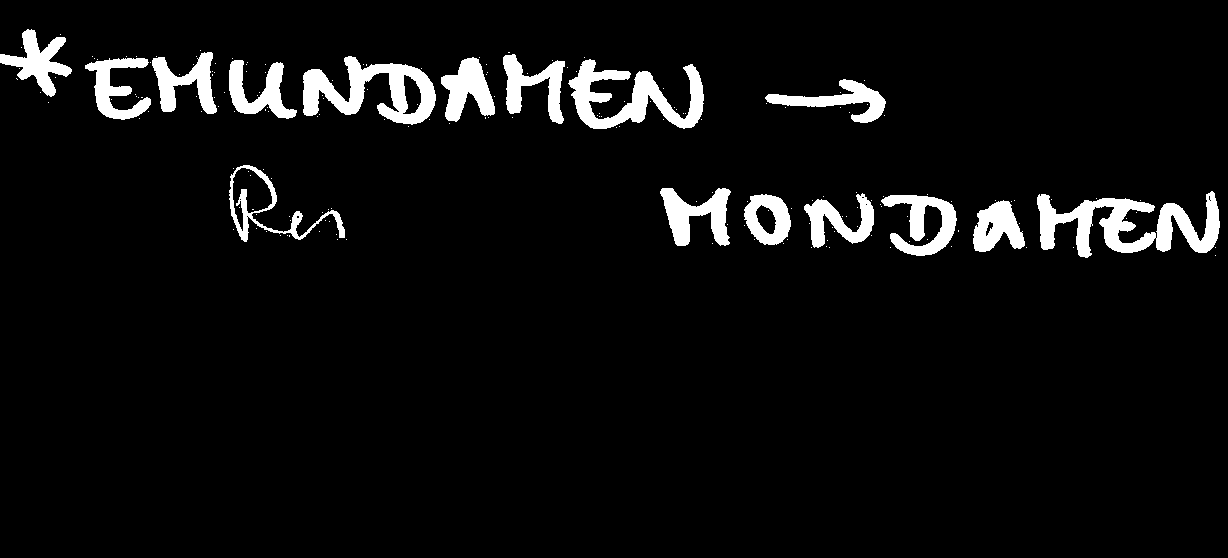 *EMUNDAMEN →
MONDAMEN